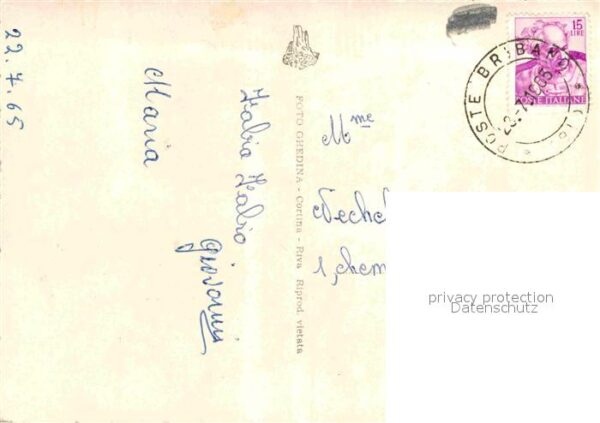 22.7.65
Maria
Fabia Fabio
Giovanni
FOTO GHEDINA - Cortina - Riva Riprod. vietata
M me
1, chem
15
LIRE
POSTE ITALIANE
POSTE BRIBANO
privacy protection
Datenschutz